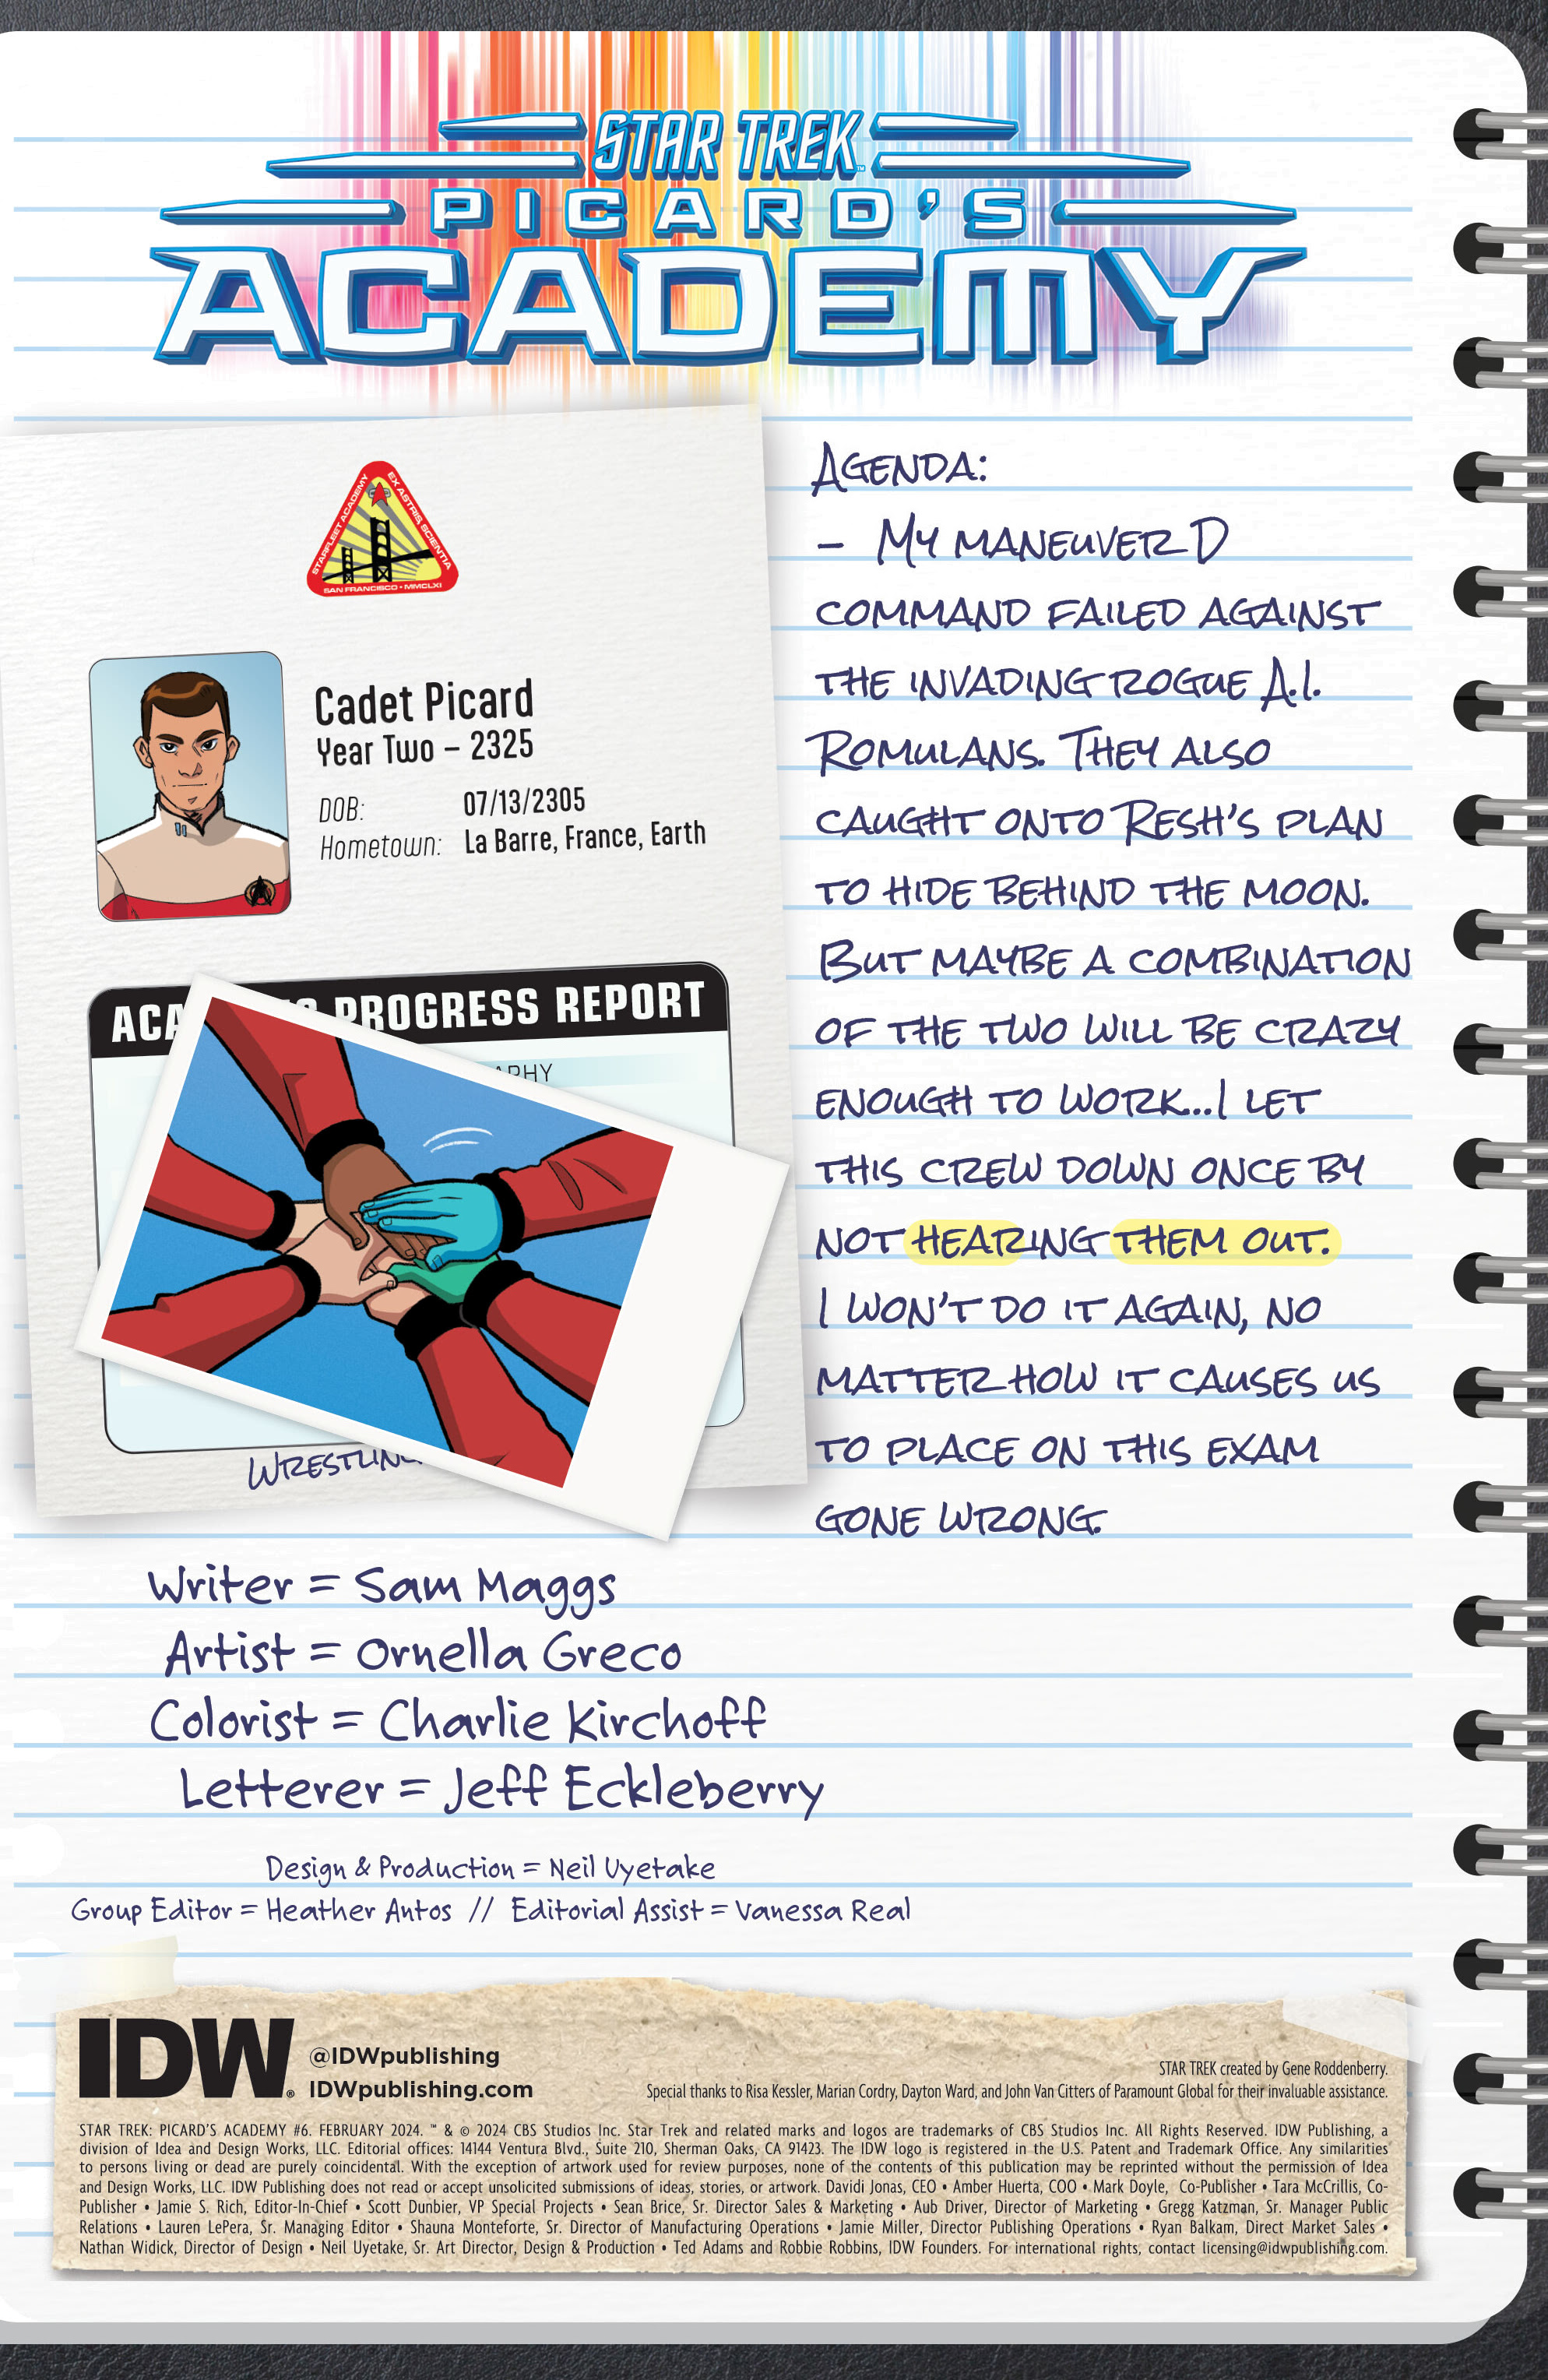 STAR TREK™
PICARD'S
ACADEMY
STARFLEET ACADEMY
EX ASTRIS, SCIENTIA
SAN FRANCISCO • MMCLXI
Cadet Picard
Year Two – 2325
DOB: 07/13/2305
Hometown: La Barre, France, Earth
PROGRESS REPORT
WRESTLING
AGENDA:
– MY MANEUVER D
COMMAND FAILED AGAINST
THE INVADING ROGUE A.I.
ROMULANS. THEY ALSO
CAUGHT ONTO RESH'S PLAN
TO HIDE BEHIND THE MOON.
BUT MAYBE A COMBINATION
OF THE TWO WILL BE CRAZY
ENOUGH TO WORK...I LET
THIS CREW DOWN ONCE BY
NOT HEARING THEM OUT.
I WON'T DO IT AGAIN, NO
MATTER HOW IT CAUSES US
TO PLACE ON THIS EXAM
GONE WRONG.
Writer = Sam Maggs
Artist = Ornella Greco
Colorist = Charlie Kirchoff
Letterer = Jeff Eckleberry
Design & Production = Neil Uyetake
Group Editor = Heather Antos // Editorial Assist = Vanessa Real
IDW®
@IDWpublishing
IDWpublishing.com
STAR TREK created by Gene Roddenberry.
Special thanks to Risa Kessler, Marian Cordry, Dayton Ward, and John Van Citters of Paramount Global for their invaluable assistance.
STAR TREK: PICARD'S ACADEMY #6. FEBRUARY 2024. ™ & © 2024 CBS Studios Inc. Star Trek and related marks and logos are trademarks of CBS Studios Inc. All Rights Reserved. IDW Publishing, a
division of Idea and Design Works, LLC. Editorial offices: 14144 Ventura Blvd., Suite 210, Sherman Oaks, CA 91423. The IDW logo is registered in the U.S. Patent and Trademark Office. Any similarities
to persons living or dead are purely coincidental. With the exception of artwork used for review purposes, none of the contents of this publication may be reprinted without the permission of Idea
and Design Works, LLC. IDW Publishing does not read or accept unsolicited submissions of ideas, stories, or artwork. Davidi Jonas, CEO • Amber Huerta, COO • Mark Doyle, Co-Publisher • Tara McCrillis, Co-
Publisher • Jamie S. Rich, Editor-In-Chief • Scott Dunbier, VP Special Projects • Sean Brice, Sr. Director Sales & Marketing • Aub Driver, Director of Marketing • Gregg Katzman, Sr. Manager Public
Relations • Lauren LePera, Sr. Managing Editor • Shauna Monteforte, Sr. Director of Manufacturing Operations • Jamie Miller, Director Publishing Operations • Ryan Balkam, Direct Market Sales •
Nathan Widick, Director of Design • Neil Uyetake, Sr. Art Director, Design & Production • Ted Adams and Robbie Robbins, IDW Founders. For international rights, contact licensing@idwpublishing.com.